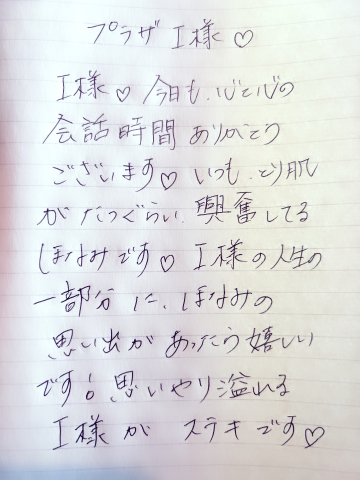 プラザ I様♡
I様♡ 今日も、心と心の
会話時間 ありがとう
ございます♡ いつも、とり肌
がたつぐらい、興奮してる
ほなみです♡ I様の人生の
一部分に、ほなみの
思い出があったら嬉しい
です! 思いやり溢れる
I様が ステキです♡